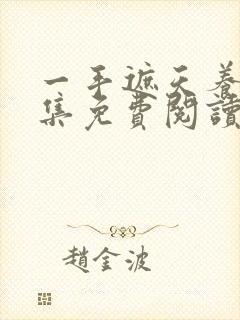 一手遮天養
集免費閱讀
趙金波